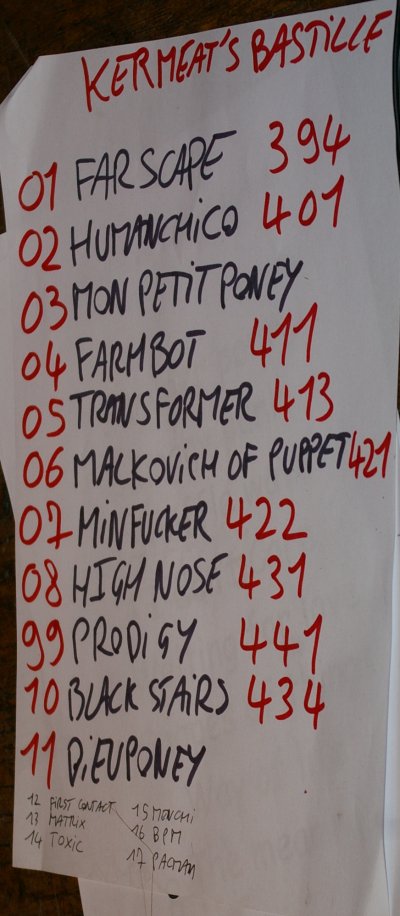 KERMEAT'S BASTILLE
01 FARSCAPE 394
02 HUMANCHICO 401
03 MON PETIT PONEY
04 FARMBOT 411
05 TRANSFORMER 413
06 MALKOVICH OF PUPPET 421
07 MINFUCKER 422
08 HIGH NOSE 431
99 PRODIGY 441
10 BLACK STAIRS 434
11 DIEUPONEY
12 FIRST CONTACT
13 MATRIX
14 TOXIC
15 MONCHI
16 BPM
17 PACMAN